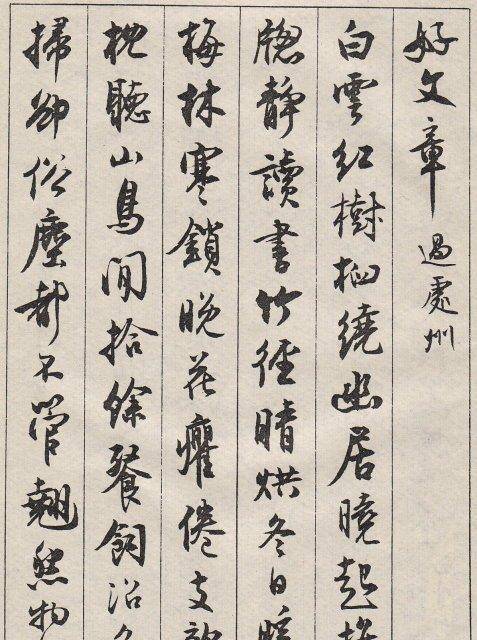 好文章 過處州
白雲紅樹繞幽居曉起
牕靜讀書竹徑晴烘冬日暖
梅林寒鎖晚花癯倦支
枕聽山鳥閒拾餘餐飼沼
掃卻俗塵都不管翹然物